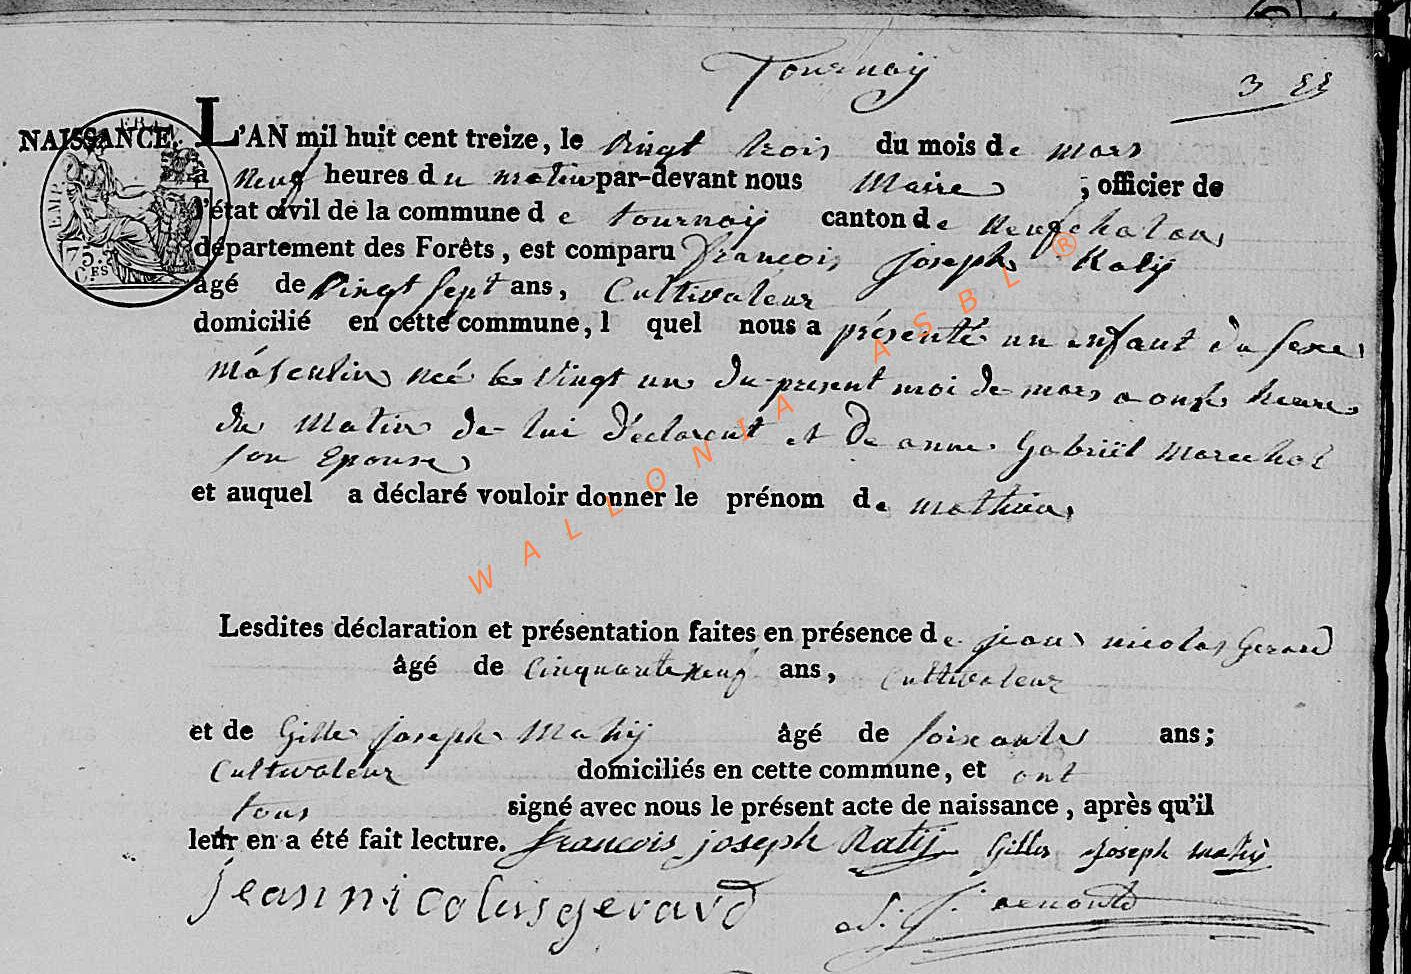 Tournay
3 22
NAISSANCE. L'AN mil huit cent treize, le vingt trois du mois de mars
a neuf heures du matin par-devant nous Maire, officier de
l'état civil de la commune de tournay canton de neufchateau
département des Forêts, est comparu francois joseph Raty
âgé de vingt sept ans, Cultivateur
domicilié en cette commune, lequel nous a présenté un enfant du sexe
Másculin neé le vingt un du present moi de mars a onze heure
du Matin de lui déclarent et de anne Gabriël Marechal
son Epouse
et auquel a déclaré vouloir donner le prénom de mathieu
Lesdites déclaration et présentation faites en présence de jean nicolas Gerard
âgé de Cinquante neuf ans, Cultivateur
et de Gille joseph Mahy âgé de soixante ans;
Cultivateur domiciliés en cette commune, et ont
tous signé avec nous le présent acte de naissance, après qu'il
leur en a été fait lecture. francois joseph Ratij Gilles joseph mahy
jean nicolas gerard
EMP. FRAN.
75 CES
WALLONIA ASBL ®